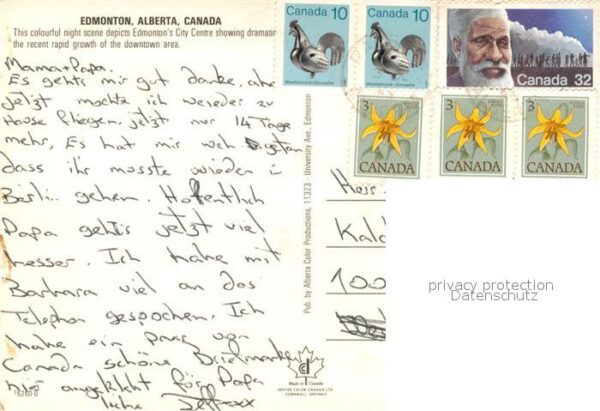 EDMONTON, ALBERTA, CANADA
This colourful night scene depicts Edmonton's City Centre showing dramatic
the recent rapid growth of the downtown area.
Mama + Papa.
Es gehts mir gut danke, aber
jetzt mochte ich wereder zu
House fliegen. jetzt nur 14 Tage
mehr. Es hat mir weh getan
dass ihr musste wieder in
Berlin gehen. Hofentlich
Papa gehts jetzt viel
besser. Ich habe mit
Barbara viel an das
Telephon gespochen. Ich
habe ein paar von
Canada schöne Briefmarken
hier angeklebt für Papa
liebe
6260-D
Pub. by Alberta Color Productions, 11323 - University Ave., Edmonton
Made in Canada
DEXTER COLOR CANADA LTD
CORNWALL, ONTARIO
Canada 10
Weathercock/Girouette
Canada 10
Weathercock/Girouette
Canada 32
3
CANADA
3
CANADA
3
CANADA
Herr
Kald
100
privacy protection
Datenschutz